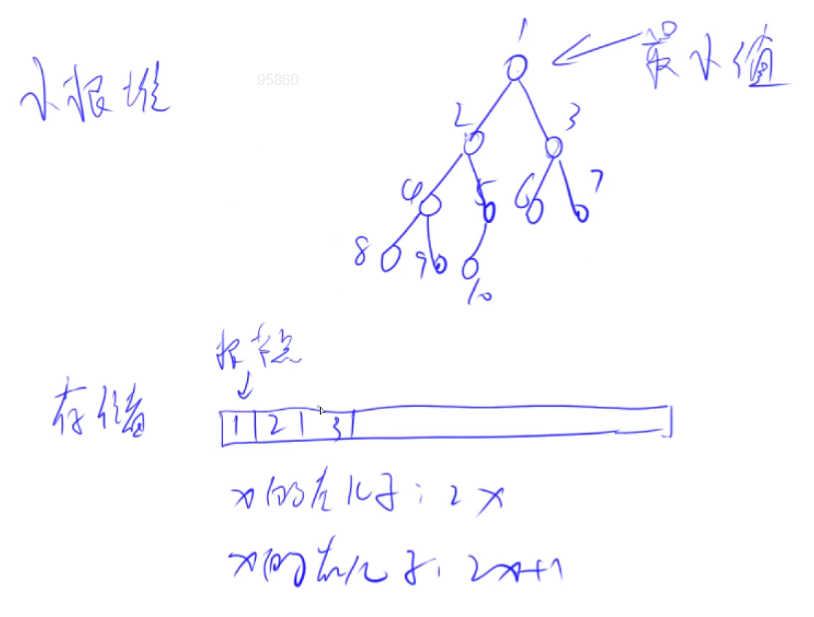 小根堆
95860
最小值
1
2 3
4 5 6 7
8 9 10
根节点
存储
1 2 3
x的左儿子: 2x
x的右儿子: 2x+1